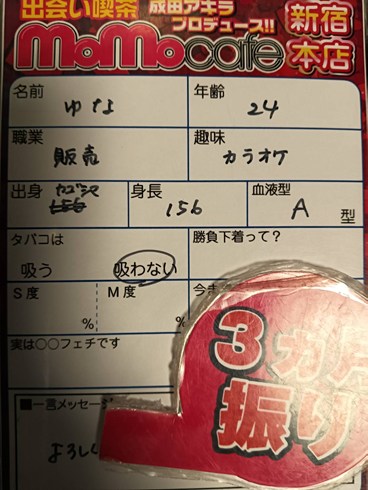 出会い喫茶 成田アキラ プロデュース!! 新宿
MoMocafe 本店
名前 ゆな 年齢 24
職業 販売 趣味 カラオケ
出身 身長 156 血液型 A 型
タバコは 勝負下着って?
吸う 吸わない
S度 M度
% %
実は○○フェチです
3カ月
振り
■一言メッセージ
よろし